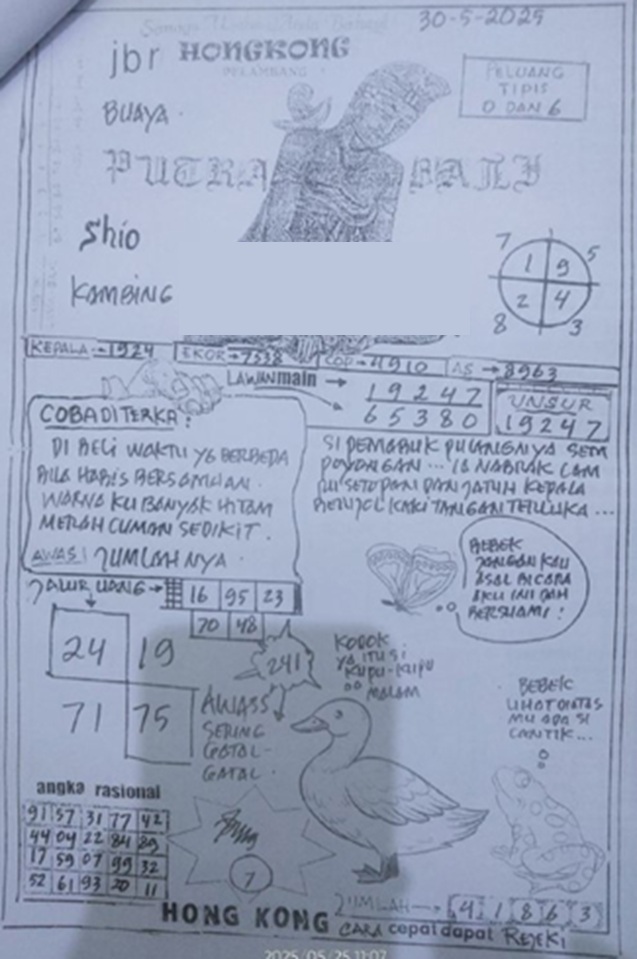 30-5-2025
jbr HONGKONG
PELAMBANG
BUAYA
PELUANG
TIPIS
0 DAN 6
PUTRA BALI
Shio
KAMBING
7 5
1 9
2 4
8 3
KEPALA → 1924
EKOR → 7538
COP → 4910
AS → 8963
LAWAN main →
19247
65380
UNSUR
19247
COBA DI TERKA:
DI BELI WAKTU YG BERBEDA
BILA HABIS BERSAMAAN.
WARNA KU BANYAK HITAM
MERAH CUMAN SEDIKIT.
AWAS! JUMLAHNYA.
SI PEMABUK PULANGNYA SEM
POYONGAN... IA NABRAK LAM
PU SETOPAN DAN JATUH KEPALA
BENJOL KAKI TANGAN TERLUKA...
BEBEK
JANGAN KAU
ASAL BICARA
AKU INI DAH
BERSUAMI!
JALUR UANG →
16 95 23
70 48
24 19
71 75
241
KODOK
YA ITU SI
KUPU-KUPU
MALAM
AWASS
SERING
GATAL-
GATAL.
BEBEK
LIHAT DIATAS
MU ADA SI
CANTIK...
angka rasional
91 57 31 77 42
44 04 22 84 89
17 59 07 99 32
52 61 93 20 11
7
JUMLAH → 4 1 8 6 3
HONG KONG CARA cepat dapat REJEKI
2025/05/25 11:07